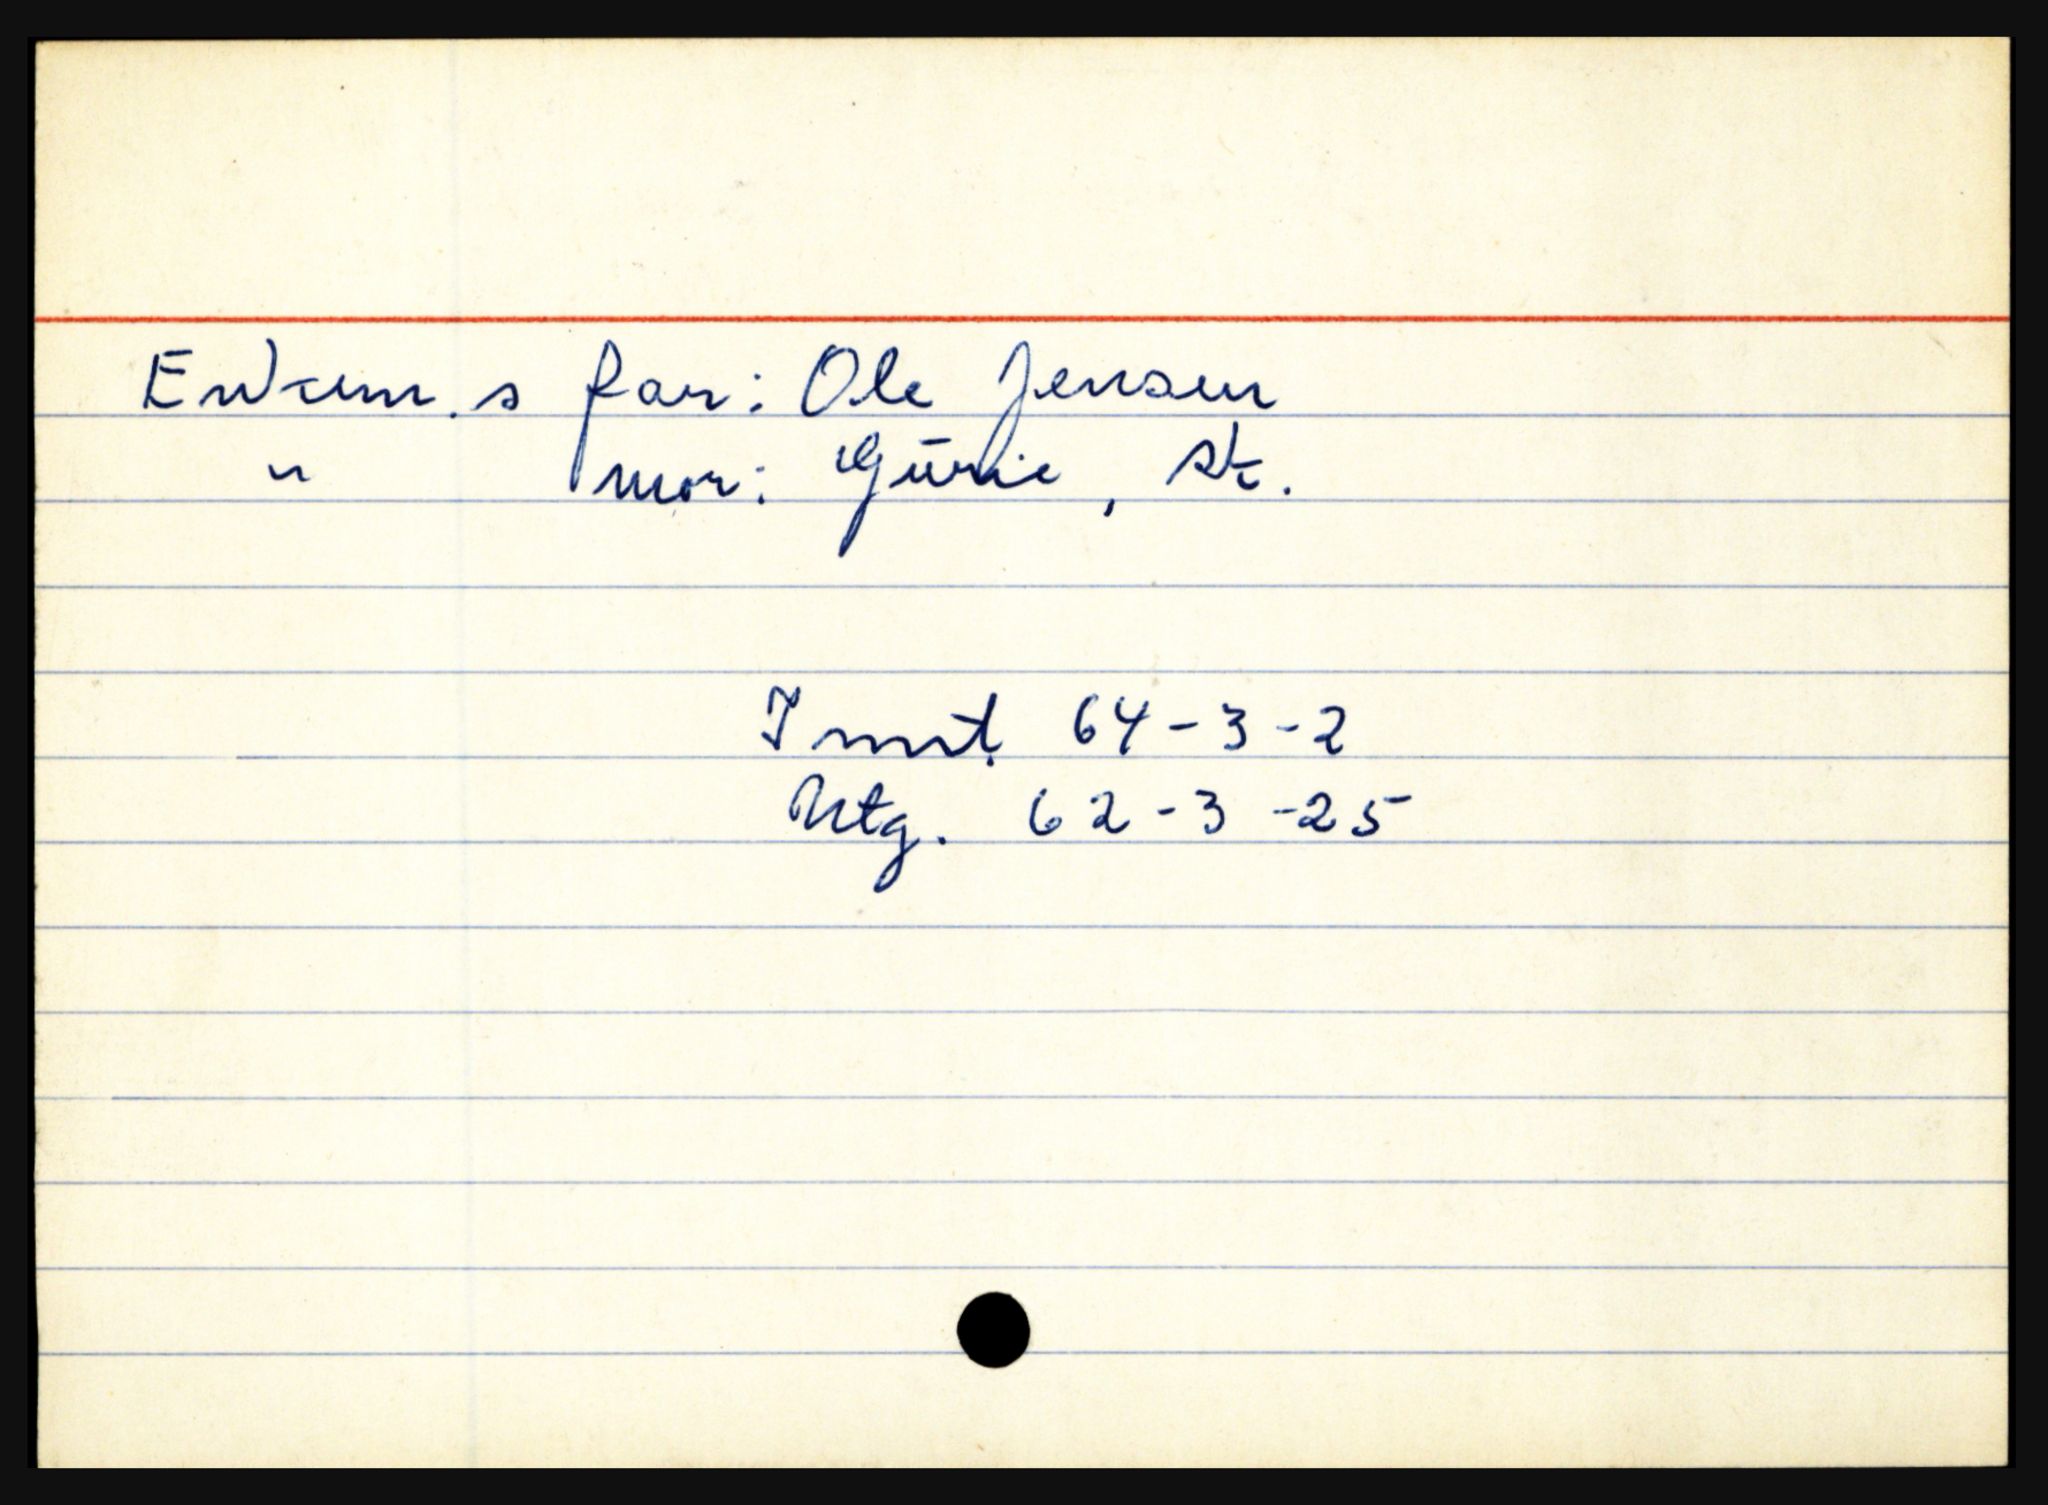 Enkem. s far: Ole Jensen
" mor: Gūrie, st.
Innt. 64-3-2
Utg. 62-3-25